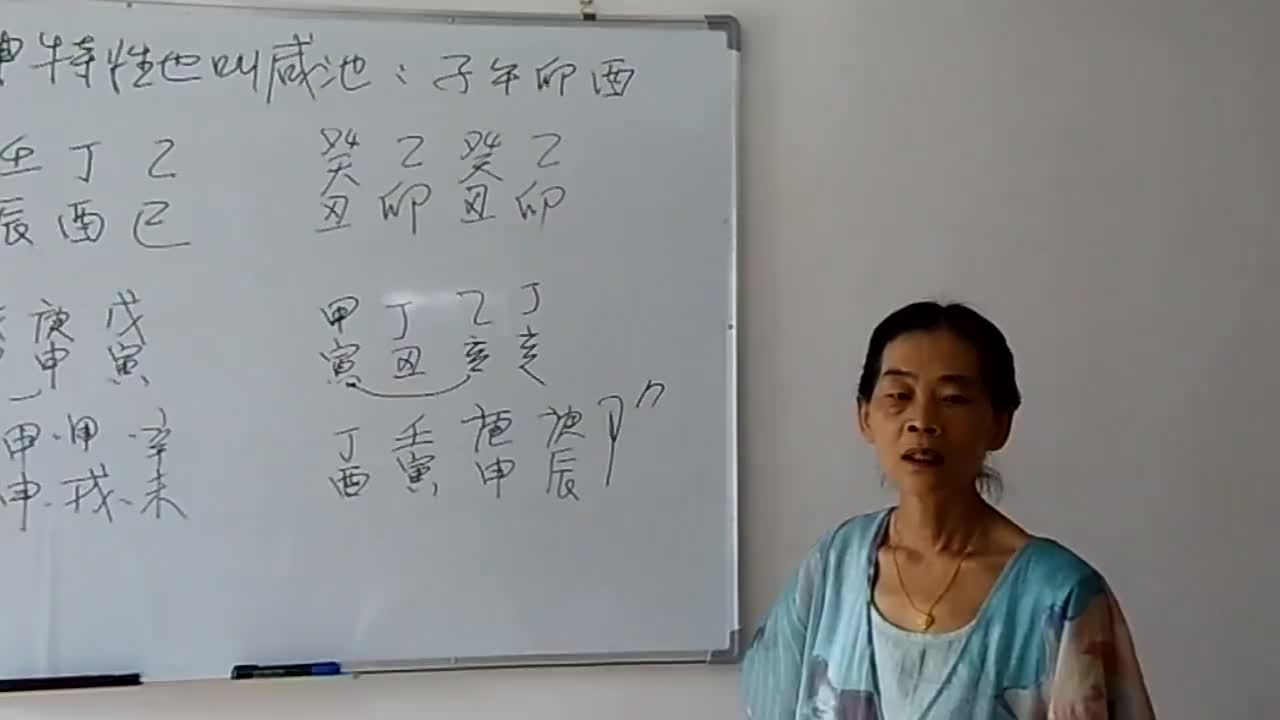 神特性也叫咸池：子午卯酉
壬丁乙 癸乙癸乙
辰酉巳 丑卯丑卯
庚戊 甲丁乙丁
申寅 寅丑亥亥
甲·甲·辛 丁壬庚庚
申·戌·未 酉寅申辰